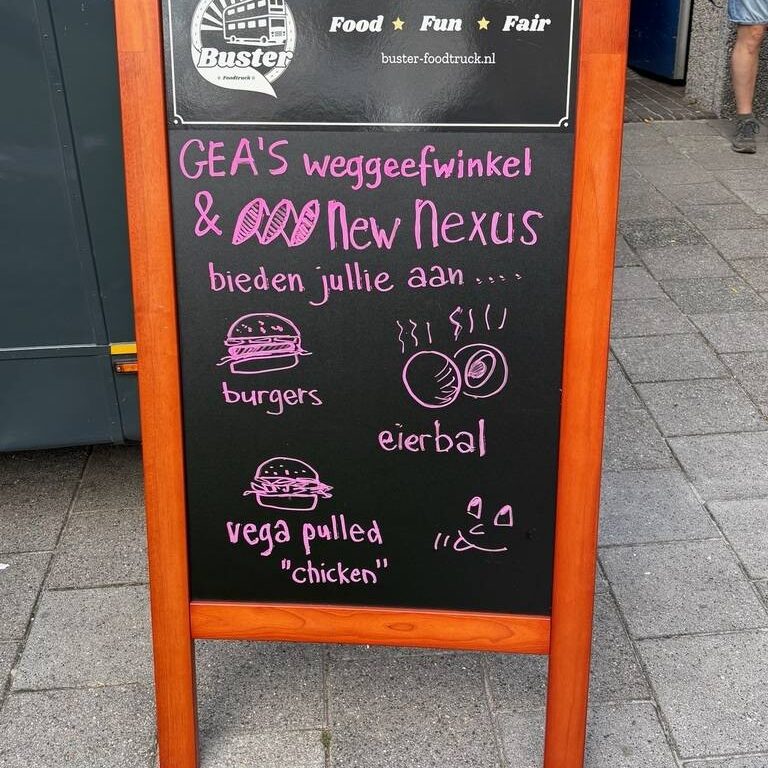 Buster
Foodtruck
Food ★ Fun ★ Fair
buster-foodtruck.nl
GEA'S weggeefwinkel
& new nexus
bieden jullie aan ....
burgers
eierbal
vega pulled
"chicken"